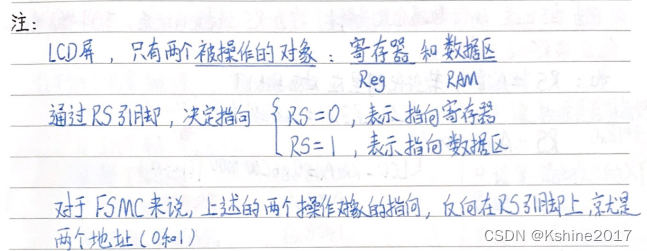 注:
LCD屏,只有两个被操作的对象:寄存器和数据区
Reg RAM
通过RS引脚,决定指向 { RS=0,表示指向寄存器
RS=1,表示指向数据区
对于FSMC来说,上述的两个操作对象的指向,反向在RS引脚上,就是
两个地址(0和1)
CSDN @Kshine2017